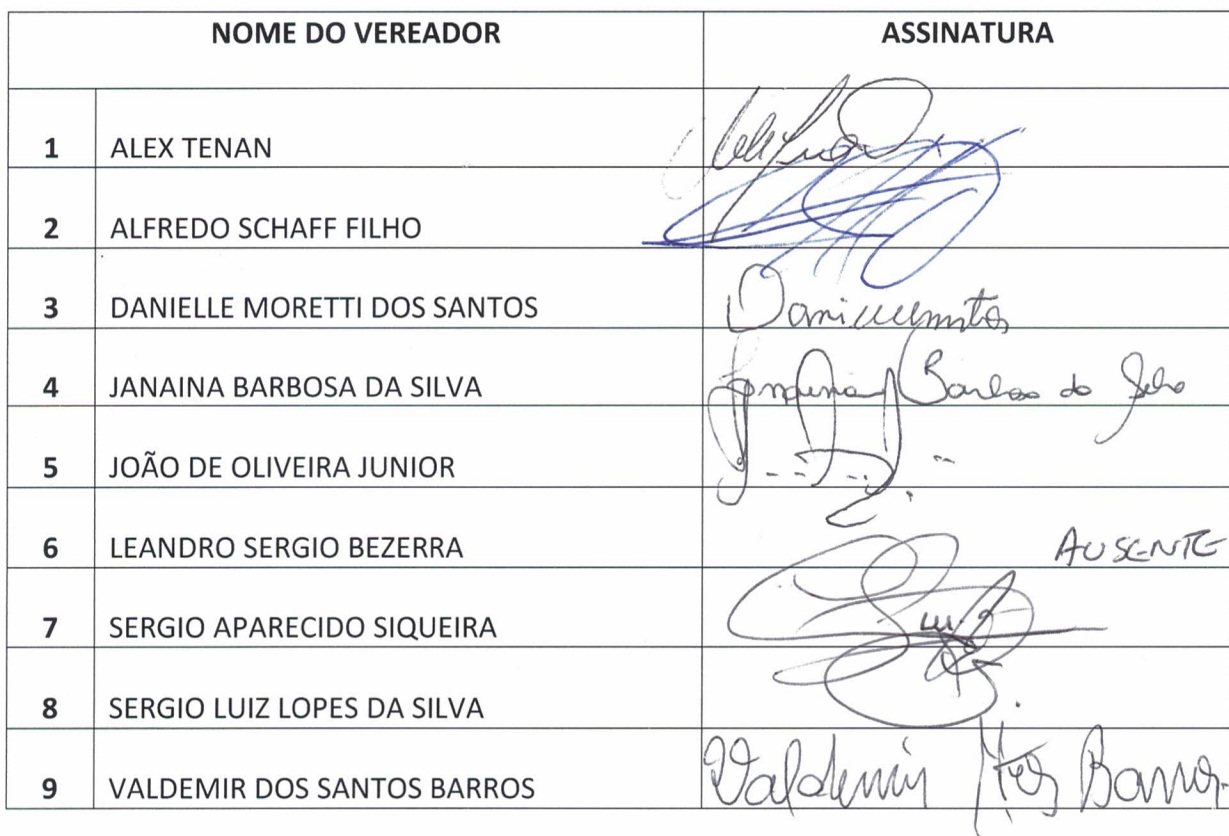 NOME DO VEREADOR ASSINATURA
1 ALEX TENAN
2 ALFREDO SCHAFF FILHO
3 DANIELLE MORETTI DOS SANTOS
4 JANAINA BARBOSA DA SILVA
5 JOÃO DE OLIVEIRA JUNIOR
6 LEANDRO SERGIO BEZERRA AUSENTE
7 SERGIO APARECIDO SIQUEIRA
8 SERGIO LUIZ LOPES DA SILVA
9 VALDEMIR DOS SANTOS BARROS Valdemir Barros